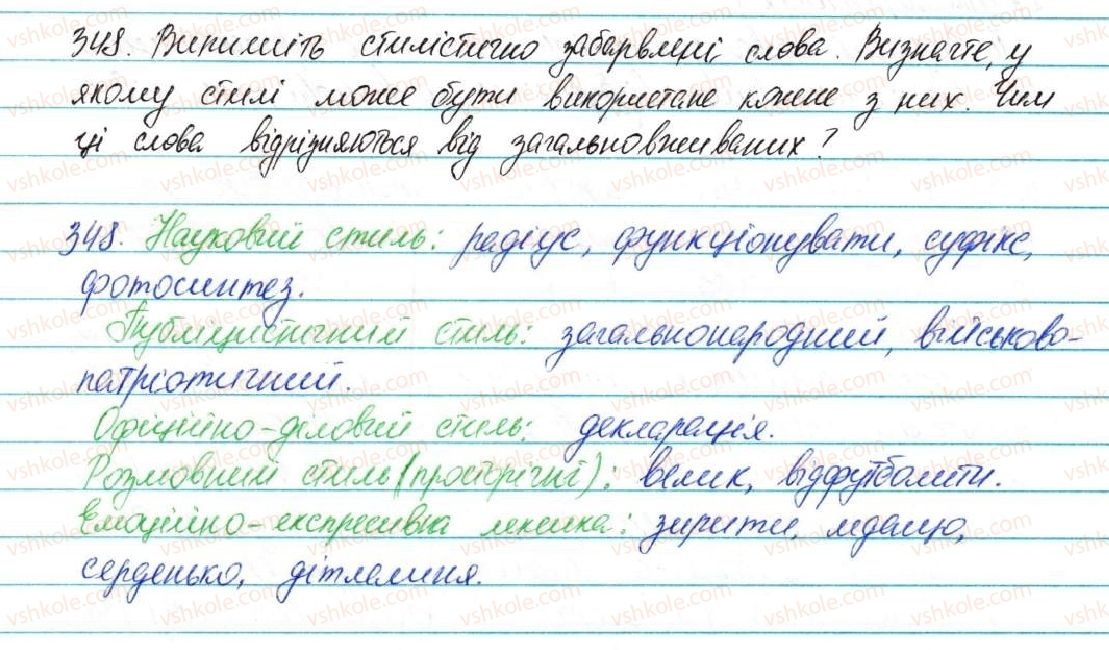 348. Випишіть стилістично забарвлені слова. Визначте, у
якому стилі може бути використане кожне з них. Чим
ці слова відрізняються від загальновживаних?
348. Науковий стиль: радіус, функціонувати, суфікс,
фотосинтез.
Публіцистичний стиль: загальнонародний, військово-
патріотичний.
Офіційно-діловий стиль: декларація.
Розмовний стиль (просторічні): велик, відфутболити.
Емоційно-експресивна лексика: зирити,
серденько, дітлашня.